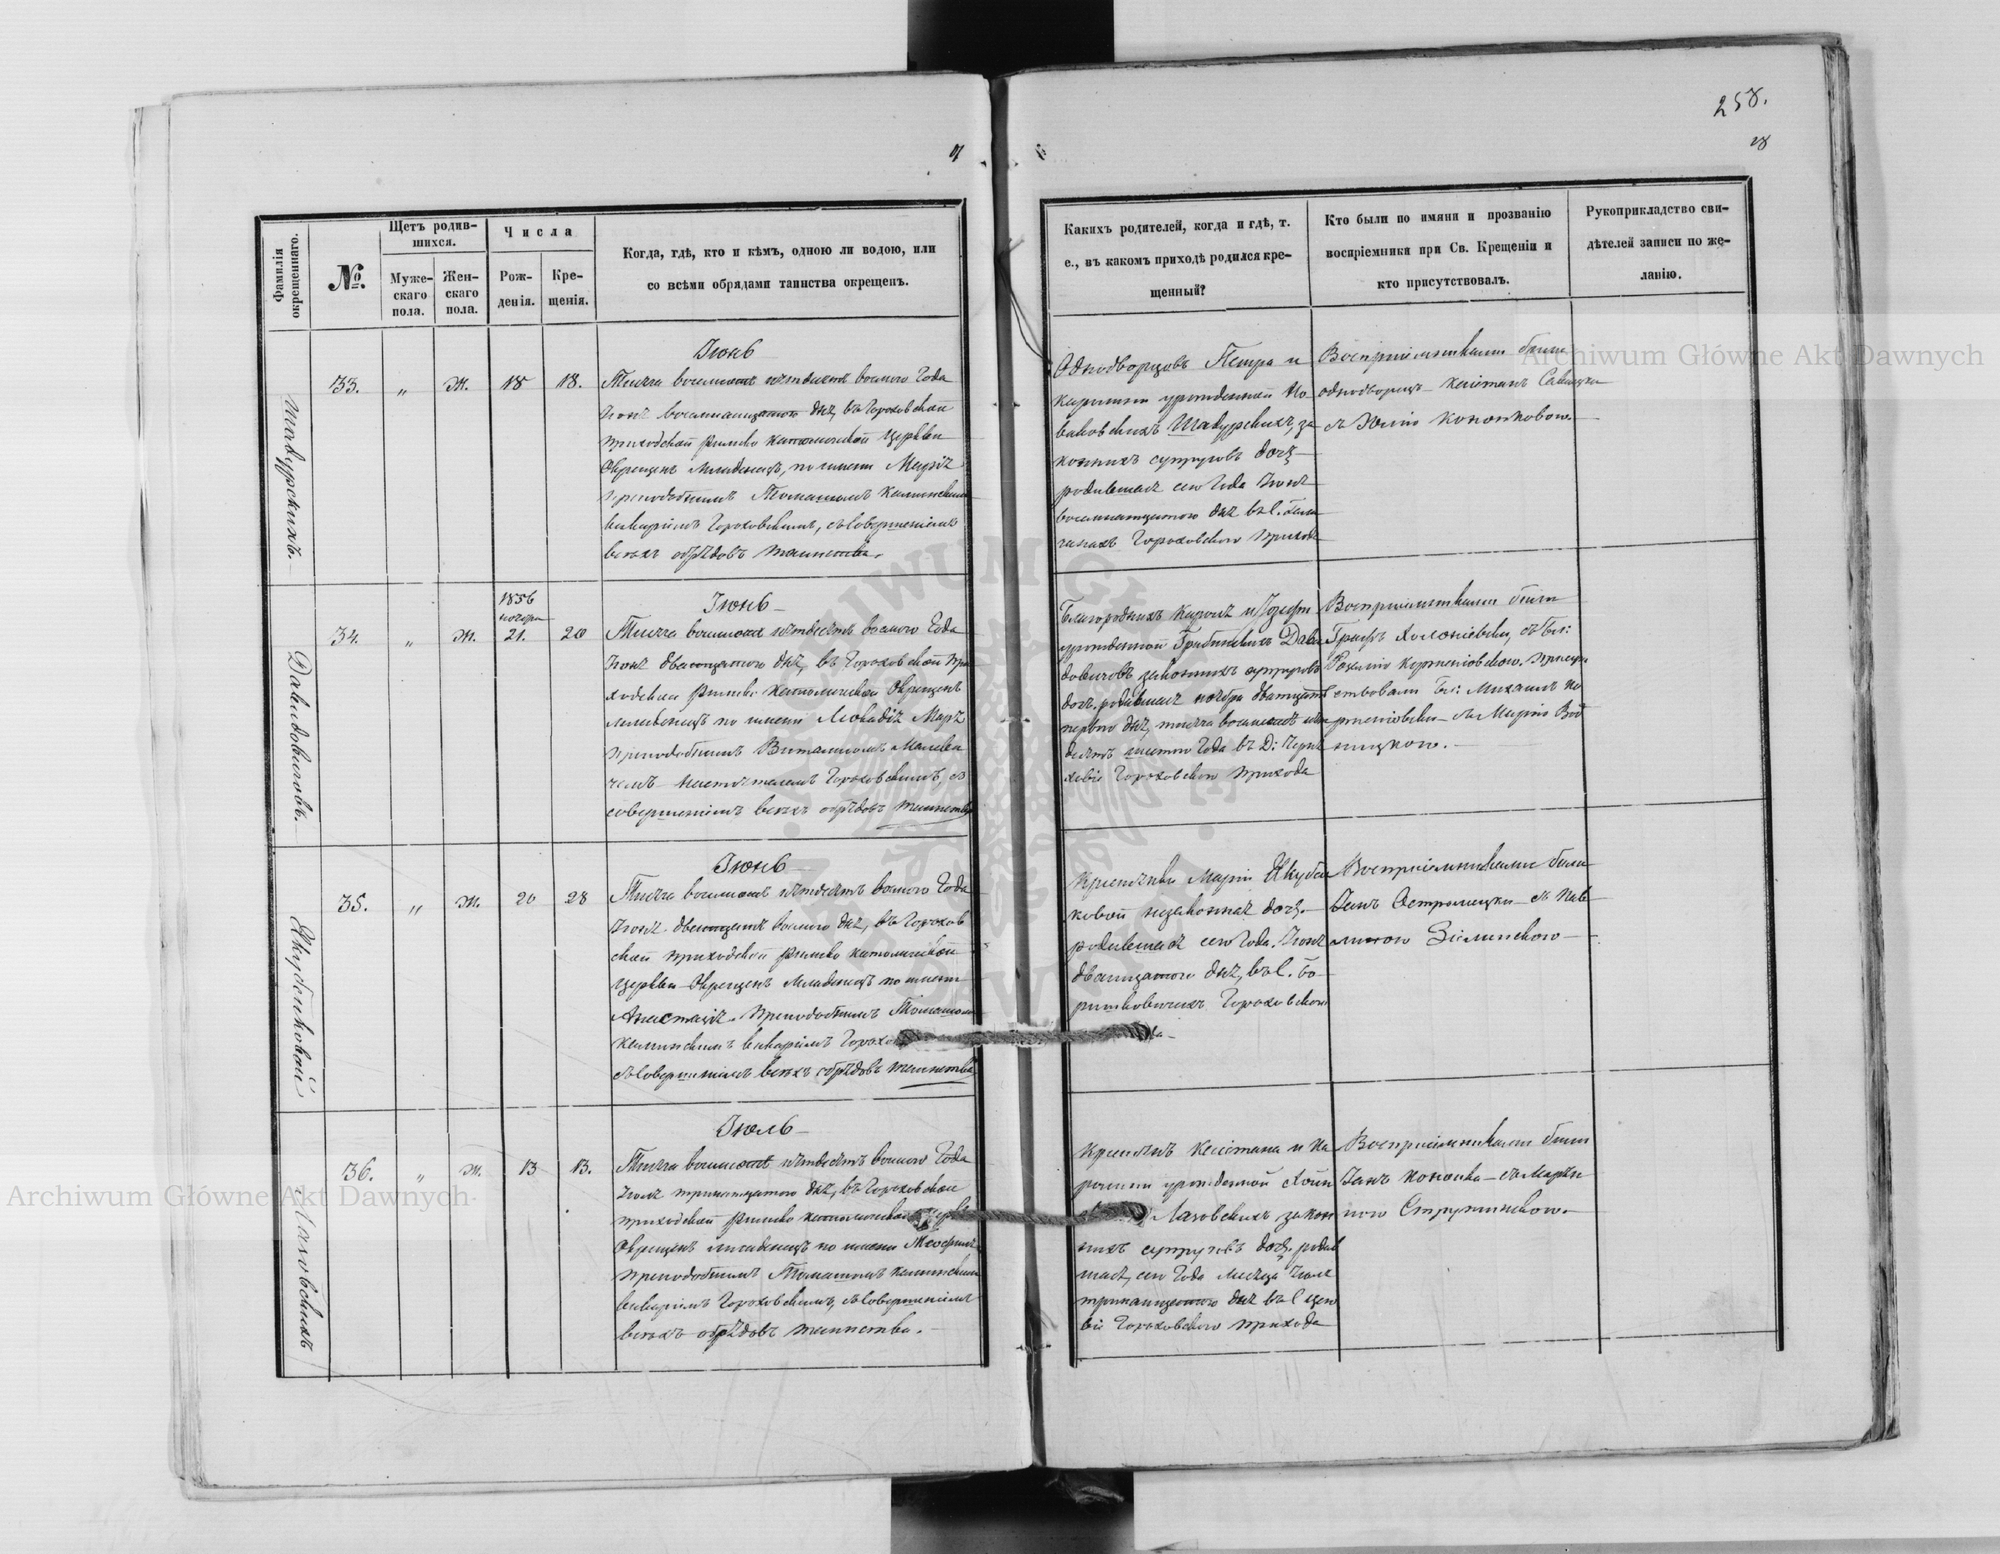 258.
28
Фамилія окрещеннаго.
№.
Щетъ родив-
шихся.
Муже-
скаго
пола.
Жен-
скаго
пола.
Числа
Рож-
денія.
Кре-
щенія.
Когда, гдѣ, кто и кѣмъ, одною ли водою, или
со всѣми обрядами таинства окрещенъ.
Шадурскихъ.
33.
„
Ж.
18
18.
Іюнь
Тысяча восемсотъ пятьдесятъ восмого Года
Іюня восемнацатого дня, въ Гороховской
приходской римско католической церкви
Окрещенъ младенецъ, по имени Марія
преподобнымъ Томашомъ Каминскимъ
викаріемъ Гороховскимъ, съ совершеніемъ
всехъ обрядовъ таинства.
Давидовичовъ.
34.
„
Ж.
1856
ноября
21.
20
Іюнь
Тысяча восемсотъ пятьдесятъ восмого Года
Іюня двацатого дня, въ Гороховской при
ходской римско католической Окрещенъ
младенецъ по имени Леокадія Марія
преподобнымъ Виталисомъ Малеви
чемъ настоятелемъ Гороховскимъ, съ
совершеніемъ всехъ обрядовъ таинства
Якубѣковой
35.
„
Ж.
20
28
Іюнь
Тысяча восемсотъ пятьдесятъ восмого Года
Іюня двацать восмого дня, въ Горохов
ской приходской римско католической
церкви Окрещенъ младенецъ по имени
Анастазія преподобнымъ Томашомъ
Каминскимъ викаріемъ
съ совершеніемъ всехъ обрядовъ таинства
Лазовскихъ
36.
„
Ж.
13
13.
Іюль
Тысяча восемсотъ пятьдесятъ восмого Года
Іюля тринацатого дня, въ Гороховской
приходской римско католической церкви
Окрещенъ младенецъ по имени Теофиля
преподобнымъ Томашомъ Каминскимъ
викаріемъ Гороховскимъ, съ совершеніемъ
всехъ обрядовъ таинства.
Какихъ родителей, когда и гдѣ, т.
е., въ какомъ приходѣ родился кре-
щенный?
Кто были по имяни и прозванію
воспріемники при Св. Крещеніи и
кто присутствовалъ.
Рукоприкладство сви-
дѣтелей записи по же-
ланію.
Однодворцовъ Петра и
урожденной Но
ваковскихъ Шадурскихъ, за
конныхъ супруговъ дочь
родившая сего Года Іюня
восемнатцатого дня въ с.
Гороховского прихода
Воспріемниками были
однодворецъ Каіетанъ Савицки
съ Юлію Конопковою.
Благородныхъ Кароля и Іозефы
урожденной Давы
довичовъ законныхъ супруговъ
дочь, родившая ноября двацать
первого дня, тысяча восемсотъ пять
десятъ шестого Года въ Д:
Гороховского прихода
Воспріемниками были
Графъ Холоніевски, съ Бл:
Розалію Корженіовскою. присут
ствовали Бл: Михаилъ Ко
рженіовски съ Марію
Крестянки Маріи Якубѣ
ковой незаконная дочь.
родившая сего Года Іюня
двацатого дня, въ с. Бо
Гороховского
Воспріемниками были
Іанъ Остромецки съ Пав-
линою Зелинского
Крестянъ Каіетана и Ка
ролины урожденной
Лазовскихъ, закон
ныхъ супруговъ дочь родив
шая, сего Года Месяца Іюля
тринацатого дня въ с
Гороховского прихода
Воспріемниками были
Іанъ Конопка съ Марьян
ною Струтинскою.
Archiwum Główne Akt Dawnych
Archiwum Główne Akt Dawnych